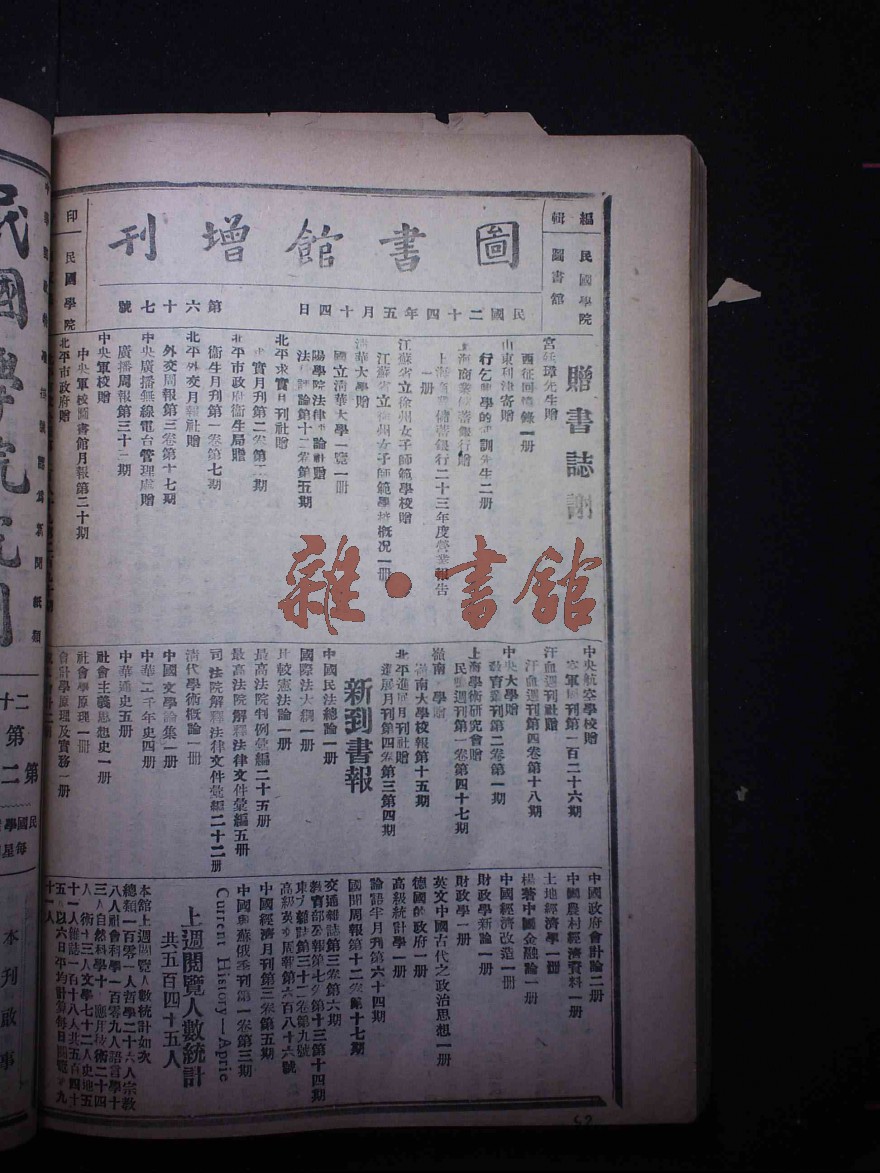 圖書館增刊
編輯 民國學院圖書館
印 民國學院
民國二十四年五月十四日 第六十七號
贈書誌謝
宮廷璋先生贈
西征回憶錄一册
山東利津寄贈
行乞興學的武訓先生二册
上海商業儲蓄銀行贈
上海商業儲蓄銀行二十三年度營業報告
一册
江蘇省立徐州女子師範學校贈
江蘇省立徐州女子師範學校概况一册
清華大學贈
國立清華大學一覽一册
陽學院法律評論社贈
法律評論第十二卷第五期
北平求實月刊社贈
求實月刊第二卷第 期
北平市政府衞生局贈
衞生月刊第一卷第七期
北平外交月報社贈
外交周報第三卷第十七期
中央廣播無線電台管理處贈
廣播周報第三十二期
中央軍校贈
中央軍校圖書館月報第二十期
北平市政府贈
中央航空學校贈
空軍週刊第一百二十六期
汗血週刊社贈
汗血週刊第四卷第十八期
中央大學贈
教育叢刊第二卷第一期
上海學術研究會贈
民 週刊第一卷第四十七期
嶺南大學贈
嶺南大學校報第十五期
北平進展月刊社贈
進展月刊第四卷第三第四期
新到書報
中國民法總論一册
國際法大綱一册
比較憲法論一册
最高法院判例彙編二十五册
最高法院解釋法律文件彙編五册
司法院解釋法律文件彙編二十二册
清代學術概論一册
中國文學論集一册
中華二千年史四册
中華通史五册
社會主義思想史一册
社會學原理一册
會計學原理及實務一册
中國政府會計論二册
中國農村經濟資料一册
土地經濟學一册
楊著中國金融論一册
中國經濟改造一册
財政學新論一册
財政學一册
英文中國古代之政治思想一册
德國的政府一册
高級統計學一册
論語半月刊第六十四期
國聞周報第十二卷第十七期
交通雜誌第三卷第六期
教育部公報第七卷第十三第十四期
東方雜誌第三十二卷第九號
高級英文周報第六百八十六號
中國經濟月刊第三卷第五期
中國與蘇俄季刊第一卷第三期
Current History—Apric
上週閱覽人數統計
共五百四十五人
本館上週閱覽人數統計如次
總類一百零一人哲學二十六人宗教
八人社會科學一百零九人語言學十
三人自然科學十 應用技術二十四
人 術十三人文學七十二人史地五
十一人雜誌一百十八人共五百四十
五 以六日平均計算每日閱覽 九
十一人
第二
本刊啟事